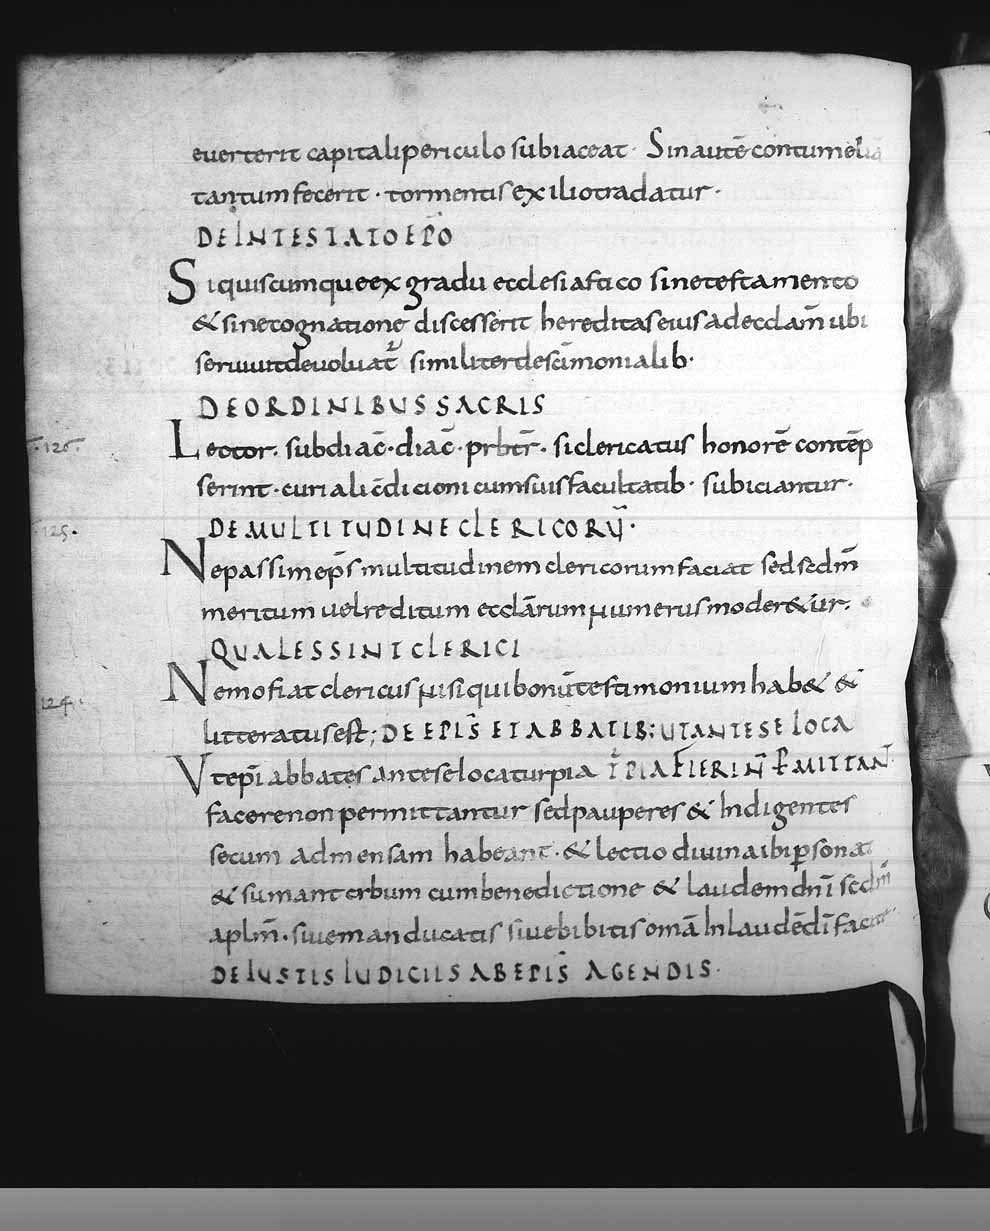 euerterit capitali periculo subiaceat · Sin autē contumeliā
tantum fecerit · tormentis exilio tradatur ·
DE INTESTATO EPŌ
Siquiscumque ex gradu ecclesiastico sine testamento
& sine cognatione discesserit hereditas eius ad ecclām ubi
seruiuit deuoluat̄ similiter de scīmonialib·
DE ORDINIBUS SACRIS
·126·
Lector · subdiac̄ · diac̄ · prbtr̄ · si clericatus honorē contēp
serint · curiali cōdicioni cum suis facultatib· subiciantur ·
·125·
DE MULTITUDINE CLERICORŪ ·
Ne passim ep̄s multitudinem clericorum faciat sed scdm̄
meritum uel reditum ecclārum numerus moder&ur ·
QUALES SINT CLERICI
·124·
Nemo fiat clericus nisi qui bonū testimonium hab& &
litteratus est; DE EPIS̄ ET ABBATIB; UT ANTE SE LOCA
Vt epī abbates ante se loca turpia TPIA FIERI N̄ P̄MITTAN̄
facere non permittantur sed pauperes & Indigentes
secum ad mensam habeant · & lectio diuina ibi p̱sonat
& sumant cibum cum benedictione & laudem dnī scdm̄
aplm̄ · siue manducatis siue bibitis omā In laudē dī facite
DE IUSTIS IUDICIIS AB EPIS̄ AGENDIS ·